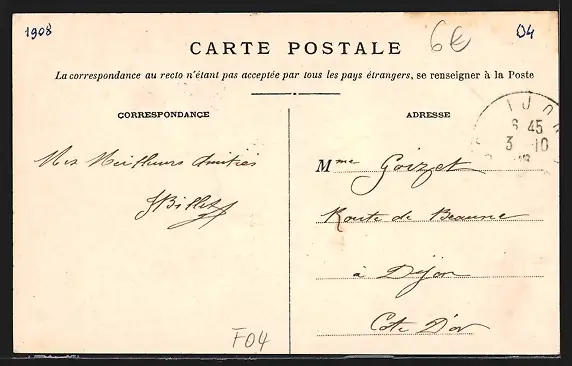 1908
6€
04
CARTE POSTALE
La correspondance au recto n'étant pas acceptée par tous les pays étrangers, se renseigner à la Poste
CORRESPONDANCE
Mes Meilleurs Amitiés
JBillet
F04
ADRESSE
IJON
6 45
3 -10
Mme Goizet
Route de Beaune
à Dijon
Cote D'or